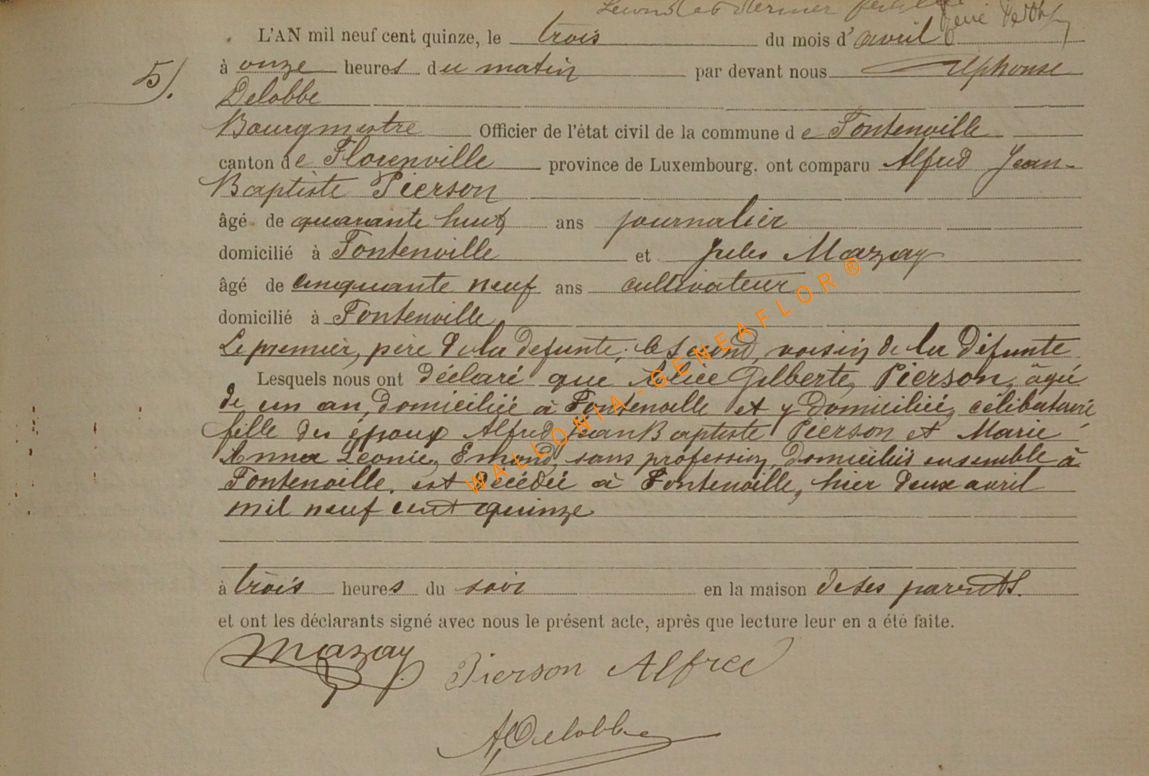 Second et dernier
L'AN mil neuf cent quinze, le trois du mois d'avril
5). à onze heures du matin par devant nous Alphonse
Delobbe
Bourgmestre Officier de l'état civil de la commune de Fontenoille
canton de Florenville province de Luxembourg. ont comparu Alfred Jean-
Baptiste Pierson
âgé de quarante huit ans journalier
domicilié à Fontenoille et Jules Mazay
âgé de cinquante neuf ans cultivateur
domicilié à Fontenoille
Le premier, père de la défunte, le second, voisin de la Défunte
Lesquels nous ont déclaré que Alice Gilberte, Pierson, âgée
de un an, domiciliée à Fontenoille et y domiciliée, célibataire,
fille des époux Alfred Jean Baptiste Pierson et Marie
Anna Léonie, Emond, sans profession, domiciliés ensemble à
Fontenoille, est décédée à Fontenoille, hier deux avril
mil neuf cent quinze
à trois heures du soir en la maison de ses parents.
et ont les déclarants signé avec nous le présent acte, après que lecture leur en a été faite.
Mazay Pierson Alfred
A, Delobbe
WALLONIA-GENEAFLOR®